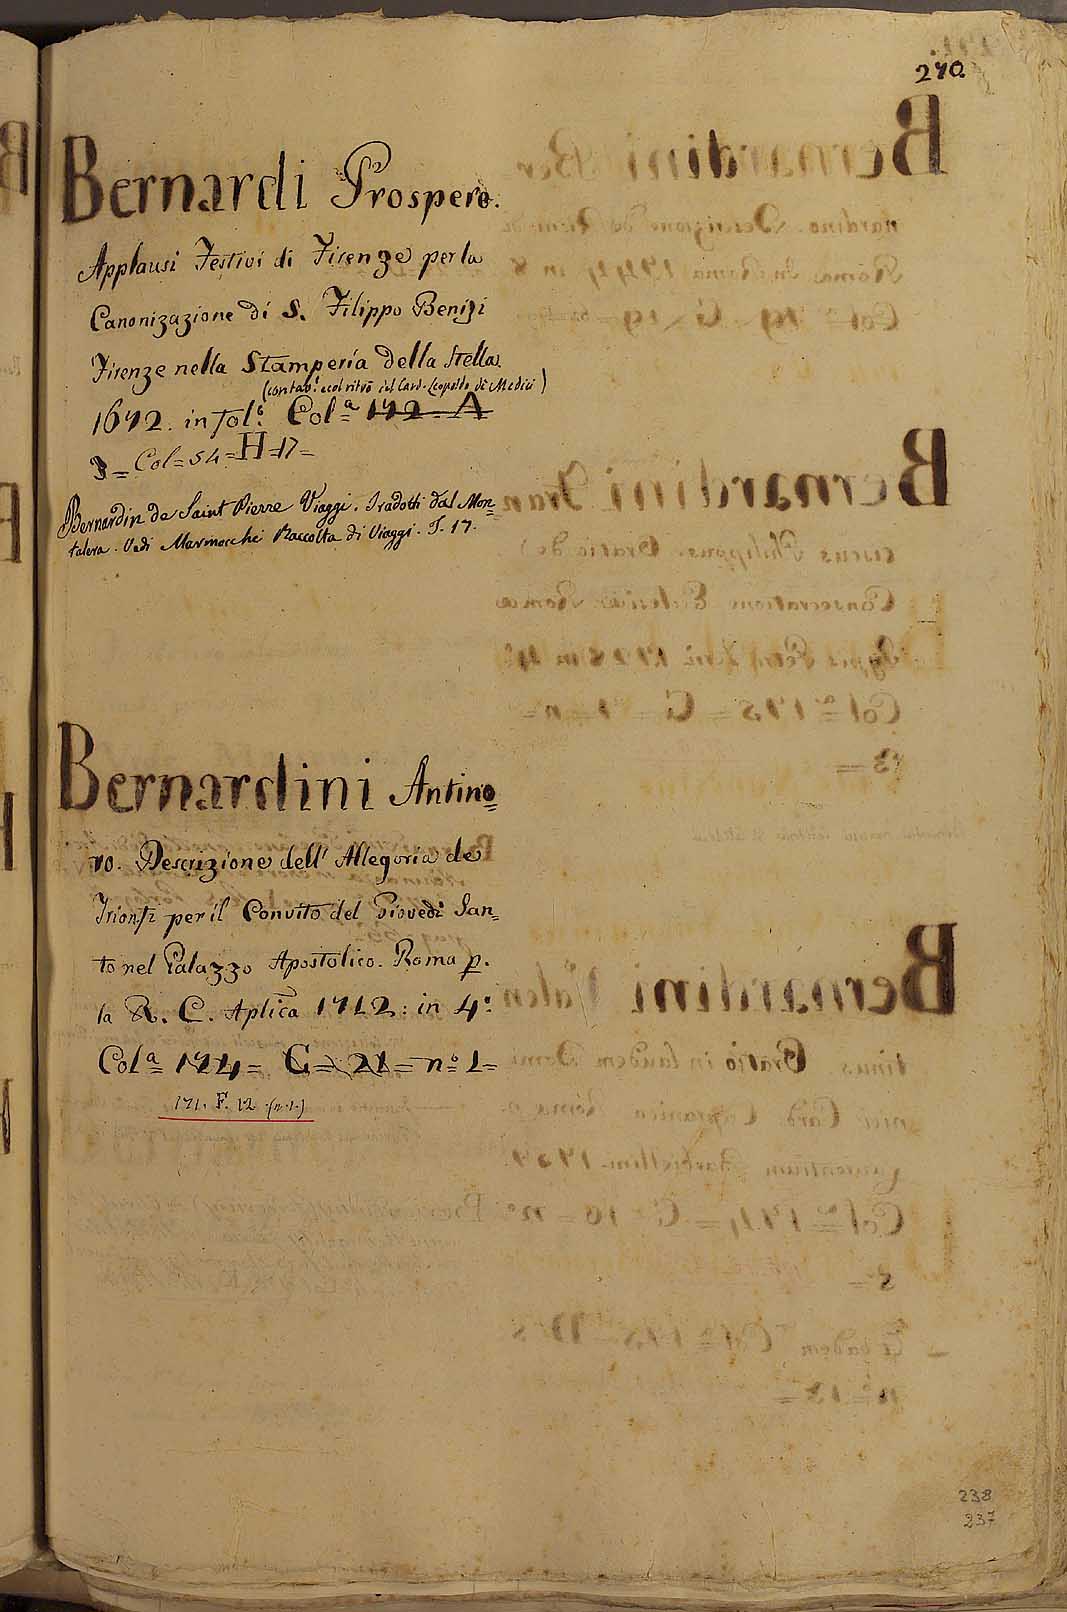 270.
Bernardi Prospero.
Applausi Festivi di Firenze per la
Canonizazione di S. Filippo Benizi
Firenze nella Stamperia della Stella.
(con tav.ᵉ e col ritrō del Card. Leopoldo di Medici)
1672. in fol.º Colª 172 = A
3 = Col = 54 = H = 17 =
Bernardin de Saint Pierre Viaggi. Tradotti dal Mon=
talera. Vedi Marmocchi Raccolta di Viaggi. T. 17.
Bernardini Antino=
ro. Descrizione dell' Allegoria de
Trionfi per il Convito del Giovedì San=
to nel Palazzo Apostolico. Roma p.
la R. C. Aplica 1712: in 4º:
Colª 174 = G = 21 = nº 1 =
171. F. 12 (n. 1.)
238
237